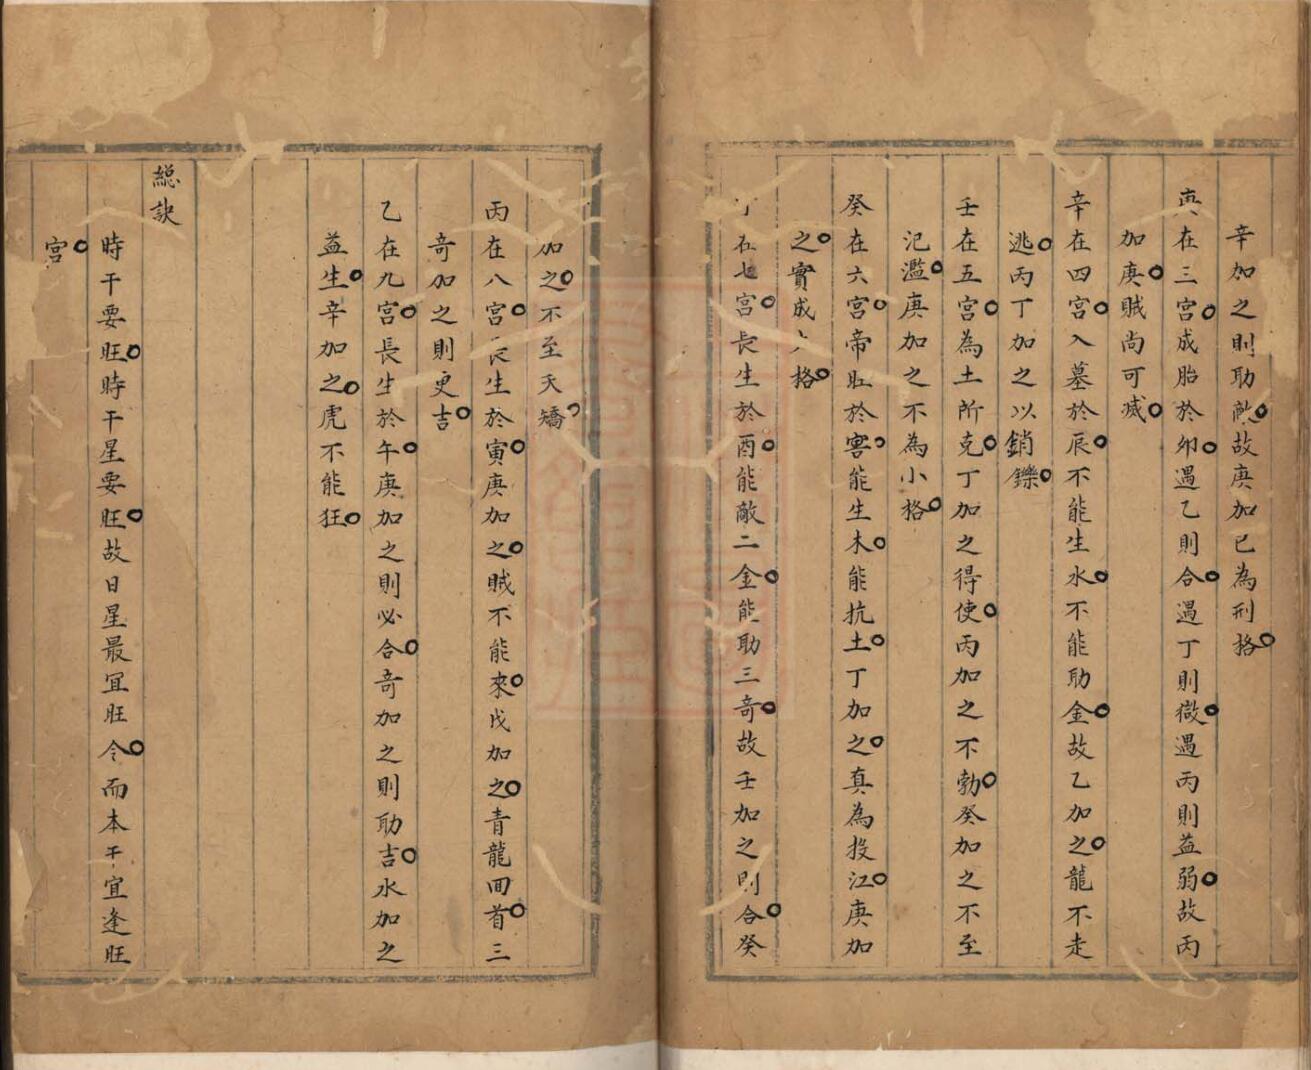 辛加之則助敵故庚加已為刑格
庚在三宮成胎於卯遇乙則合遇丁則㣲遇丙則益弱故丙
加庚賊尚可滅
辛在四宮入墓於辰不能生水不能助金故乙加之龍不走
逃丙丁加之以銷鑠
壬在五宮為土所克丁加之得使丙加之不勃癸加之不至
氾濫庚加之不為小格
癸在六宮帝旺於害能生木能抗土丁加之真為投江庚加
之實成大格
丁在七宮長生於酉能敵二金能助三奇故壬加之則合癸
加之不至夭矯
丙在八宮長生於寅庚加之賊不能來戊加之青龍回首三
奇加之則更吉
乙在九宮長生於午庚加之則必合奇加之則助吉水加之
益生辛加之虎不能狂
總訣
時干要旺時干星要旺故日星最宜旺令而本干宜逢旺
宮